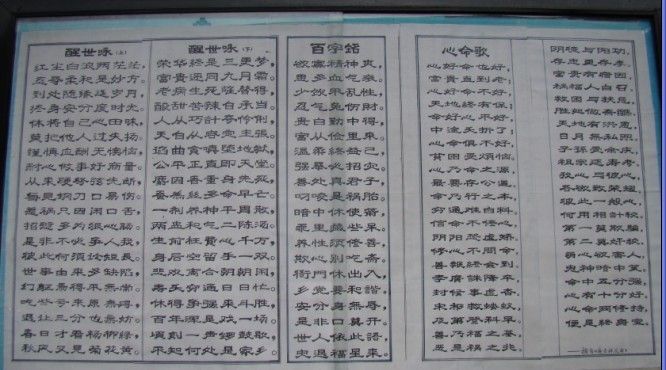 醒世咏(上)
红尘白浪两茫茫，
忍辱柔和是妙方。
到处随缘延岁月，
终身安分度时光。
休将自己心田昧，
莫把他人过失扬。
谨慎应酬无懊恼，
耐心做事好商量。
从来硬弩弦先断，
每见钢刀口易伤。
惹祸只因闲口舌，
招愆多为狠心肠。
是非不必争人我，
彼此何须论短长。
世事由来多缺陷，
幻躯焉得免无常。
吃些亏来原无碍，
退让三分也无妨。
春日才看杨柳绿，
秋风又见菊花黄。
醒世咏(下)
荣华终是三更梦，
富贵还同九月霜。
老病生死谁替得，
酸甜苦辣自承当。
人从巧计夸伶俐，
天自从容定主张。
谄曲贪嗔堕地狱，
公平正直即天堂。
麝因香重身先死，
蚕为丝多命早亡。
一剂养神平胃散，
两盅和气二陈汤。
生前枉费心千万，
身后空留手一双。
悲欢离合朝朝闹，
寿夭穷通日日忙。
休得争强来斗胜，
百年浑是戏一场。
顷刻一声锣鼓歇，
不知何处是家乡。
百字铭
欲寡精神爽，
思多血气衰。
少饮不乱性，
忍气免伤财。
贵自勤中得，
富从俭里来。
温柔终益己，
强暴必招灾。
善处真君子，
刁唆是祸胎。
暗中休使箭，
乖里藏些呆。
养性须修善，
欺心别吃斋。
衙门休出入，
乡党要和谐。
安分身无辱，
是非口莫开。
世人依此语，
灾退福星来。
心命歌
心好命也好，
富贵直到老；
命好心不好，
天地终有保；
命好心不好，
中途夭折了；
心命俱不好，
贫困受烦恼，
心乃命之源，
最要存公道，
命乃行之本，
穷通难自料，
信命不修心，
阴阳恐虚矫，
修心不问命，
善报终会到，
李广诛降卒，
封侯事虚杳，
宋祁救蝼蚁，
及第登科早，
善乃福之基，
恶是祸之兆，
阴德与阳功，
存忠更存孝，
富贵有宿因，
祸福人自召，
救困与扶危，
天地有洪恩，
日月无私照，
子孙受余庆，
祖宗延寿考，
我心与彼心，
各欲致荣耀，
彼此一般心，
何用相计较，
第一莫欺骗，
第二莫奸狡，
弱心欲害人，
鬼神暗中笑，
命中五分强，
心有十分好，
心命两修持，
便是终身宝。